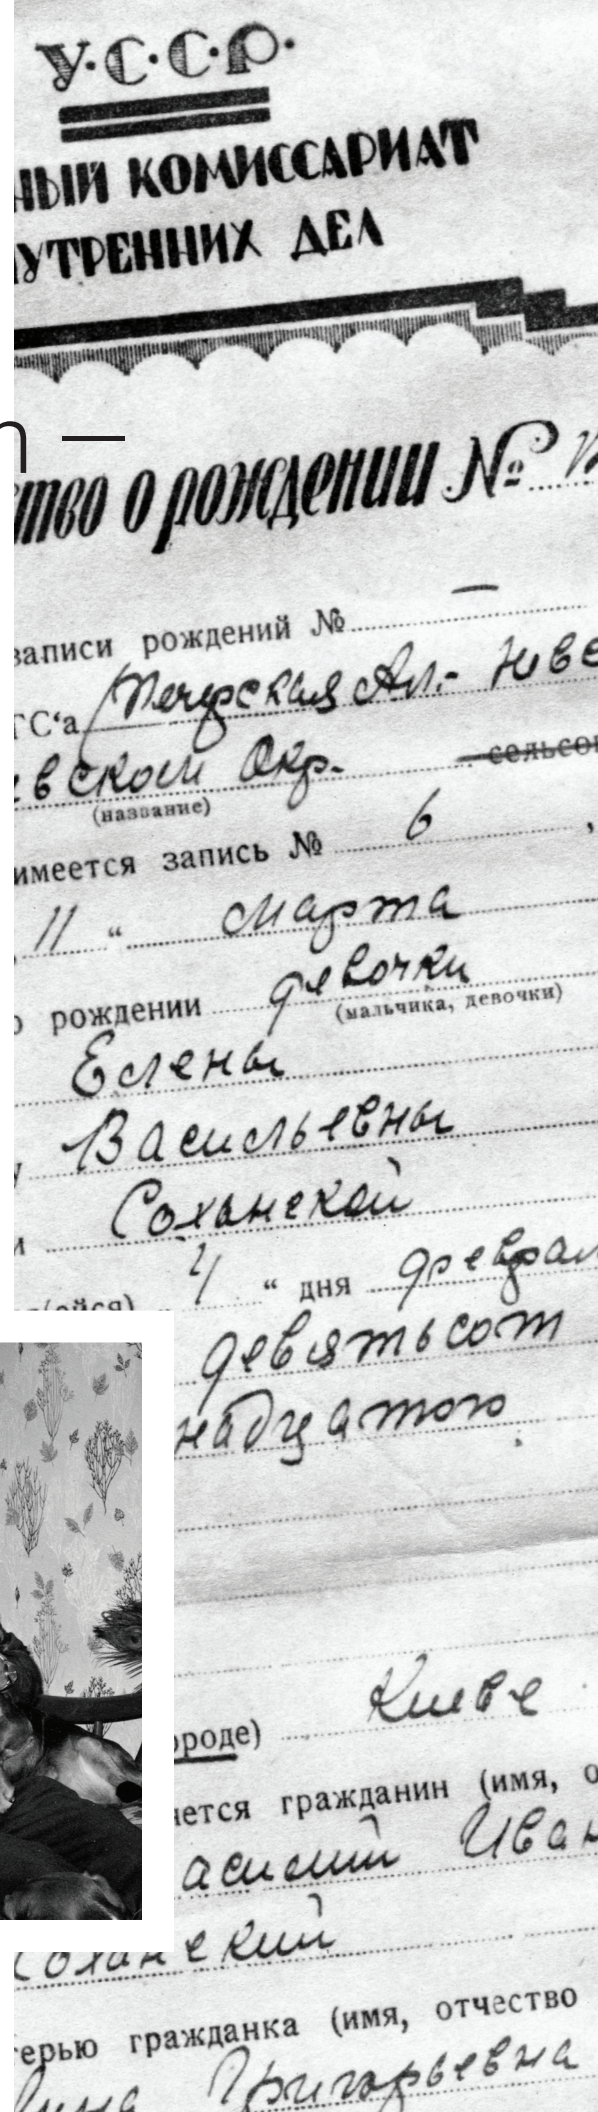 У.С.С.Р.
НЫЙ КОМИССАРИАТ
УТРЕННИХ ДЕЛ
n —
тво о рождении №
записи рождений № —
ГС'а Печерская Ал.-
евском Окр. сельсов
(название)
имеется запись № 6 ,
11 " марта
о рождении девочки
(мальчика, девочки)
Елены
Васильевны
Соханской
и
л(ейся) 4 " дня феврал
девятьсот
надцатого
ороде) Киеве
яется гражданин (имя, о
асилий Иван
Соханский
ерью гражданка (имя, отчество
Григорьевна